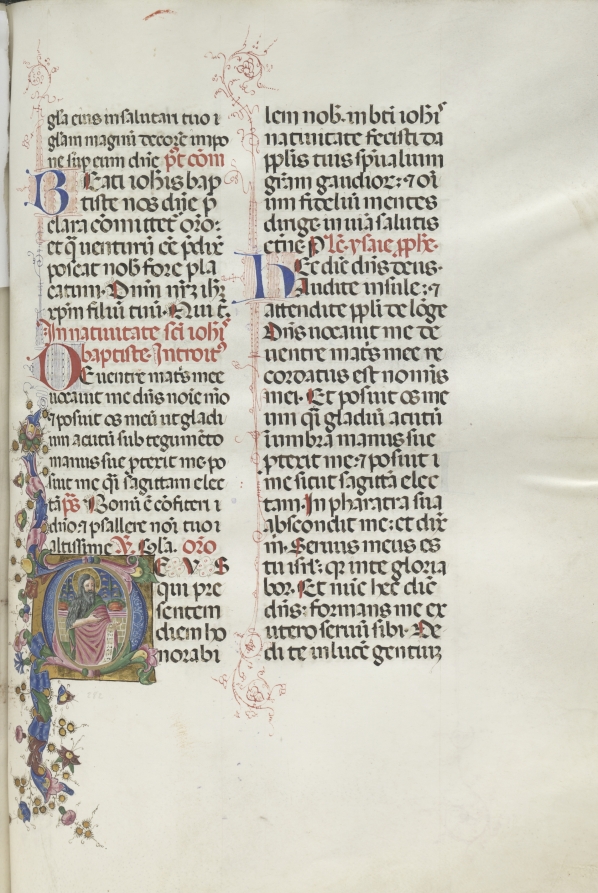 gl̃a eius in salutari tuo ⁊
gl̃am magnū decorē impo
ne sup eum dñe p̃t cōm
Beati ioħis bap
tiste nos dñe p̄
clara comittet̄ oro:
et q̄ uenturū eē p̄dix̄
poscat nob̄ fore pla
catum. Dnm nr̄z ih̄z
xp̄m filiū tuū. Qui t̄.
In natiuitate sc̄i ioh̄
baptiste. Introit9
De uentre mat̄s mee
uocauit me dn̄s noīe mō
⁊ posuit os meū ut gladi
um acutū sub tegumēto
manus sue p̄texit me po
suit me q̄i sagittam elec
tā. p̄s Bonū ē cōfiteri i
dño. ⁊ psallere noī tuo i
altissime ℣. Gl̃a. oro
DEVS
qui pre
sentem
diem ho
norabi
lem nob̄. in bt̄i ioh̄i
natiuitate fecisti da
pplis tuis sp̄ualium
gr̄am gaudior̄: ⁊ oī
um fidelium mentes
dirige in uiā salutis
etn̄e P Lc̄. ysaie. pphe.
Hec dic̄ dn̄s deus.
Audite insule: ⁊
attendite ppl̄i de lōge
Dn̄s uocauit me de
uentre mat̄s mee re
cordatus est nomīs
mei. Et posuit os me
um q̄i gladiū acutū
ī umbra manus sue
p̄texit me: ⁊ posuit i
me sicut sagittā elec
tam. In pharatra sua
abscondit me: et dix̄
m̄. Seruus meus es
tu isr̄l: qr̄ in te gloria
bor. Et nūc hec dic̄
dn̄s: formans me ex
utero seruū sibi. De
di te in lucē gentiuz